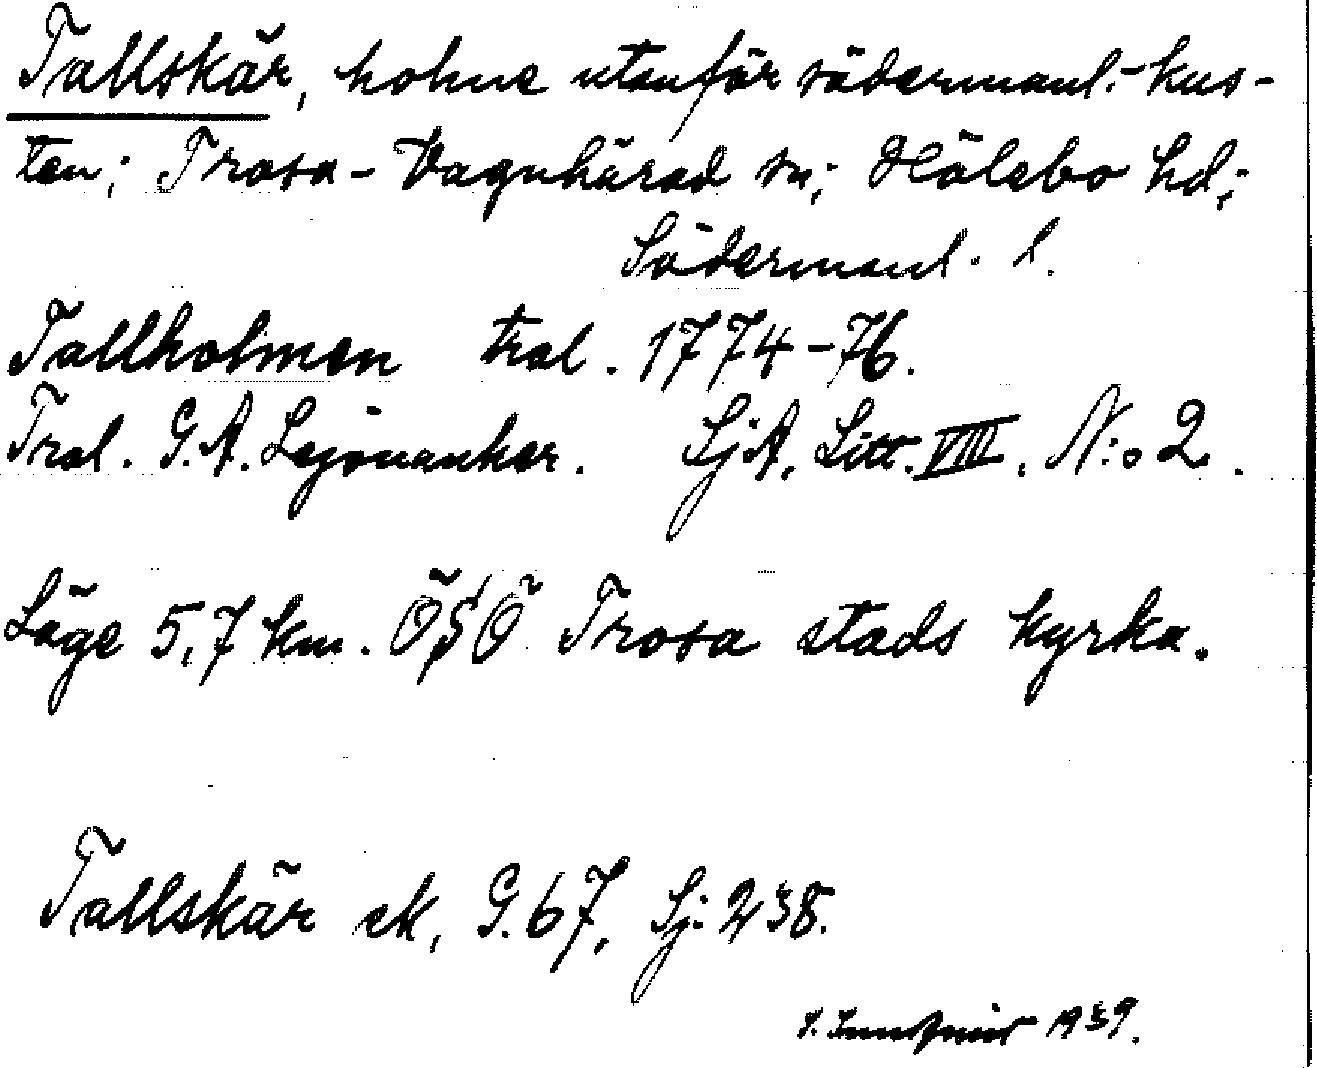 Tallskär, holme utanför södermanl.-kus-
ten; Trosa-Vagnhärad sn; Hölebo hd;
Södermanl. l.
Tallholmen tral. 1774-76.
Tral. G.A. Lejonanker. SjA, Litt. VIII. N:o 2.
Läge 5,7 km. ÖSÖ Trosa stads kyrka.
Tallskär ek, G. 67, Sj. 238.
1939.